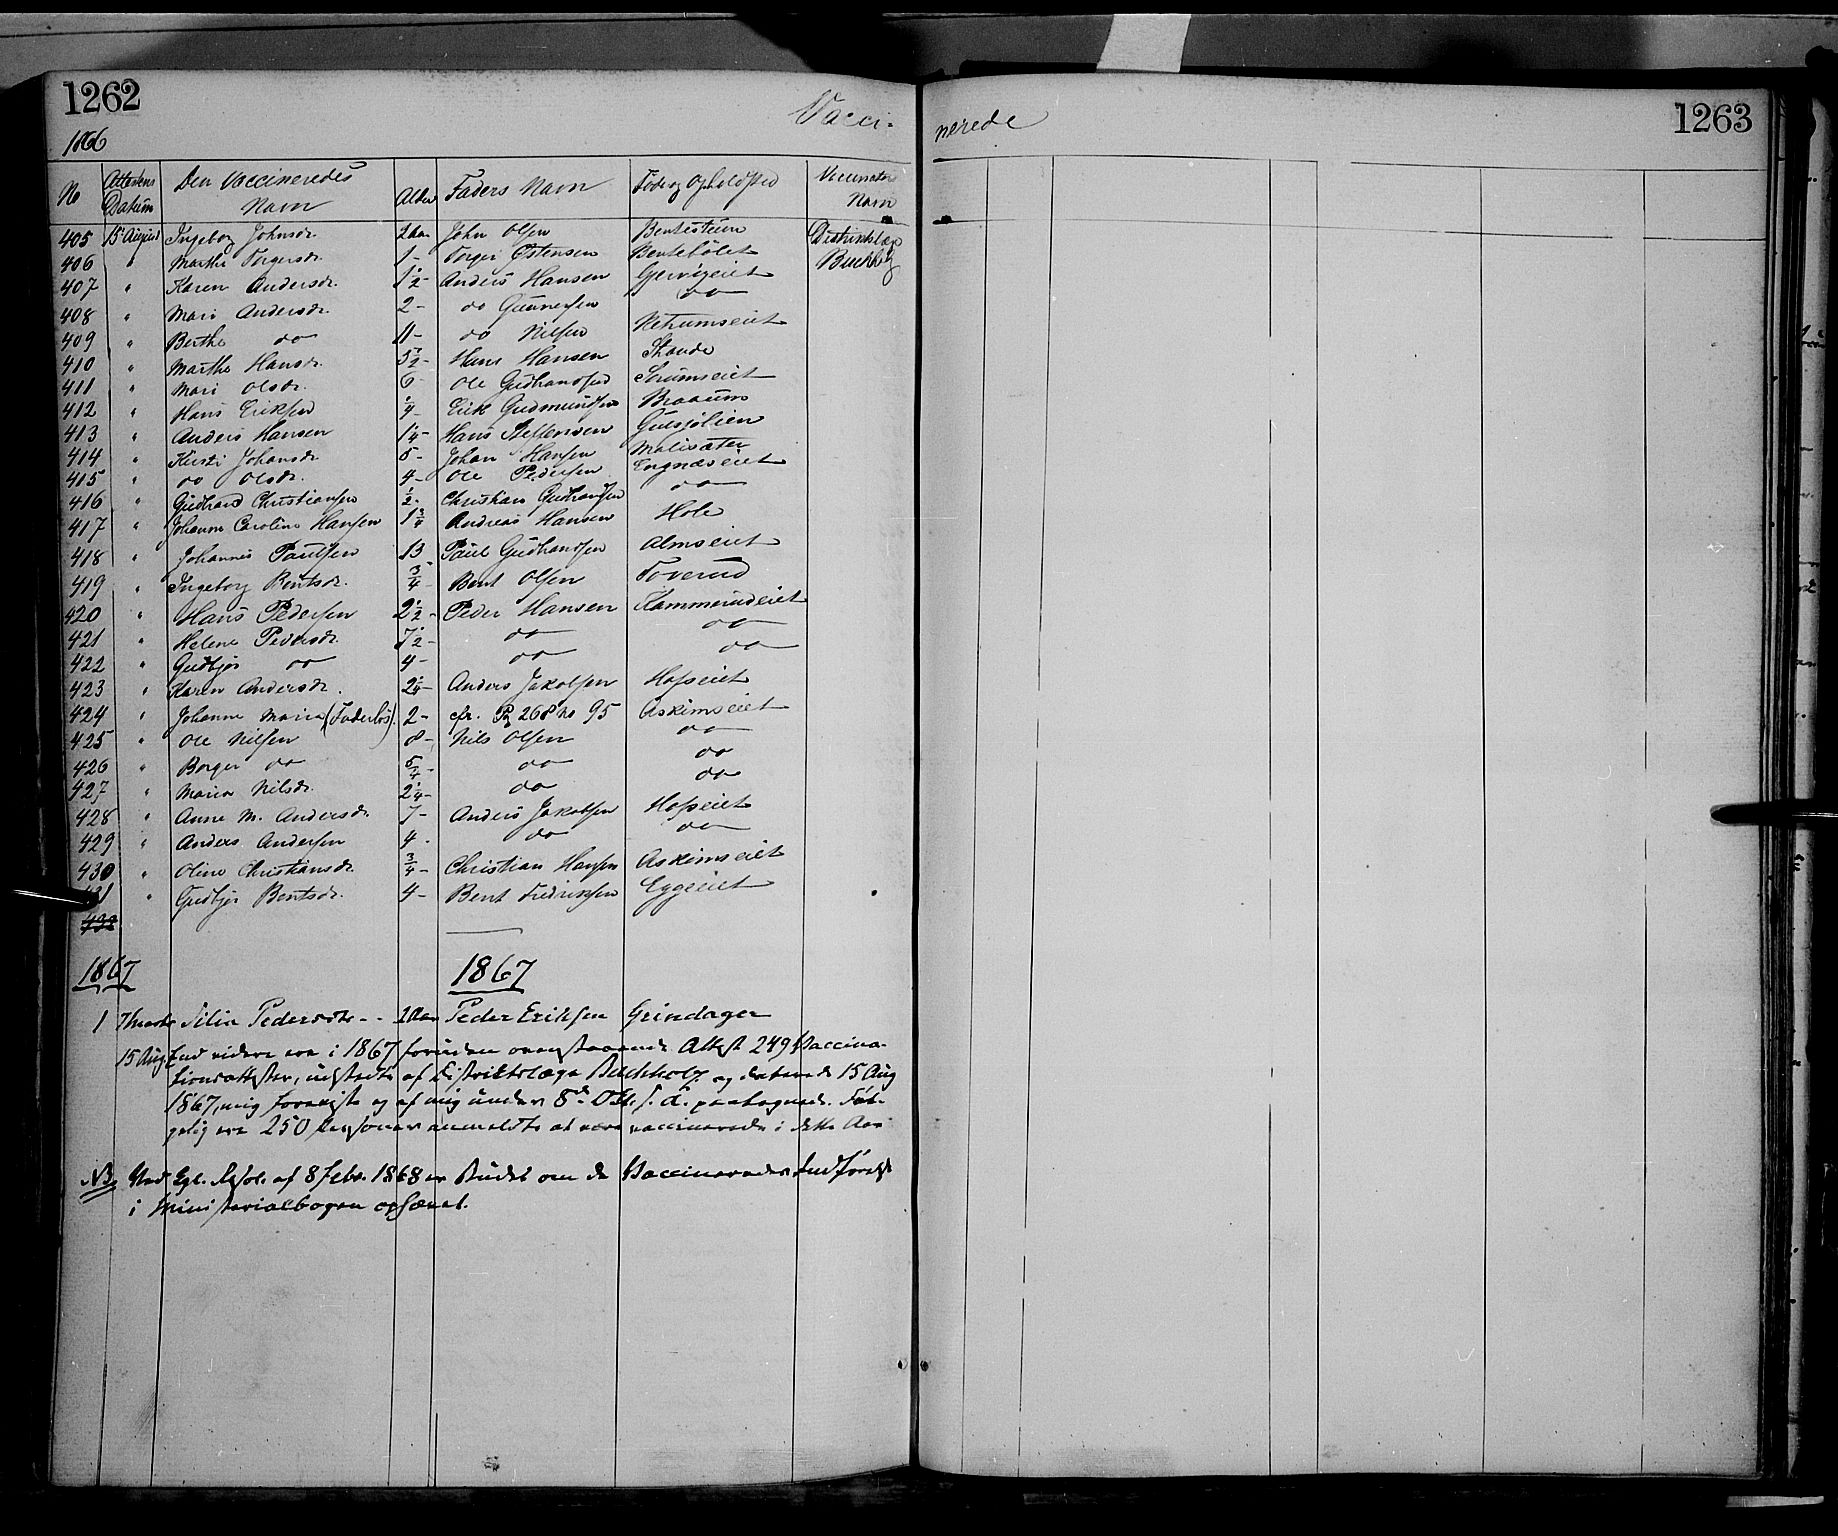 1262
1263
Vacci-
nerede
1866
No Attestens Datum Den Vaccineredes Navn Alder Faders Navn Føde og Opholdsted Vaccinators Navn
405 15 August Ingeborg Johnsdr. 2 Aar John Olsen Bentestuen Distriktslæge
406 " Marthe Torgersdr. 1 - Torger Østensen Bentebølet Buchholz
407 " Karen Andersdr. 1½ - Anders Hansen
408 " Mari Andersdr. 2 - do Gunnersen do
409 " Berthe do 11 - do Nilsen
410 " Marthe Hansdr. Hans Hansen
411 " Mari Olsdr. 6 - Ole Gudbrandsen Sørumseiet
412 " Hans Eriksen ¼ - Erik Gudmundsen Braaum
413 " Anders Hansen 1¼ - Hans Steffensen
414 " Kirsti Johansdr. 5 - Johan Hansen
415 " do Olsdr. 4 - Ole Pedersen Engnæseiet
416 " Gudbrand Christiansen ½ - Christian Gudbrandsen do
417 " Johanne Caroline Hansen 1¾ Andreas Hansen Hole
418 " Johannes Paulsen 13 Paul Gudbrandsen Almseiet
419 " Ingeborg Bentsdr. ¾ - Bent Olsen Toverud
420 " Hans Pedersen 2½ - Peder Hansen Kammerudeiet
421 " Helene Pedersdr. 7½ - do do
422 " Gudbjør do 4 - do do
423 " Karen Andersdr. 2¼ - Anders Jakobsen Hofseiet
424 " Johanne Maria (Faderløs). 2 - cfr. Pag 268 No 95 Askimseiet
425 " Ole Nilsen 8 - Nils Olsen do
426 " Borger do 5/4 - do do
427 " Maria Nilsdr. 2¼ - do do
428 " Anne M. Andersdr. 7 - Anders Jakobsen Hofseiet
429 " Anders Andersen 4 - do do
430 " Oline Christiansdr. ¾ - Christian Hansen Askimseiet
431 " Gudbjør Bentsdr. 4 - Bent Fredriksen Eggeeiet
432
1867 1867
1 Silia Pedersdtr - - 2 Aar Peder Eriksen Grindager
15 Aug. End videre ere i 1867 foruden ovenstaaende Attest 249 Vaccina-
tionsattester, udstedte af Distriktslæge Buchholz og daterede 15 Aug
1867, mig foreviste og af mig under 8de Okt. s. A. paategnede. Føl-
gelig ere 250 Personer anmeldte at være vaccinerede i dette Aar
NB. Ved Kgl. Resol. af 8 Febr. 1868 er Budet om de Vaccineredes Indførelse
i Ministerialbogen ophævet.